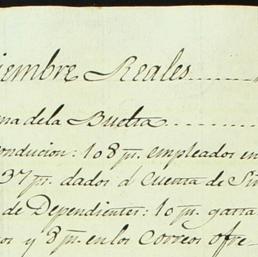 iembre Reales
ma dela Buelta
Conducion: 108 ps. empleados en
37 ps. dados à Cuenta de Su
de Dependientes: 10 ps. garra
os y 8 ps. en los Correos ofre-